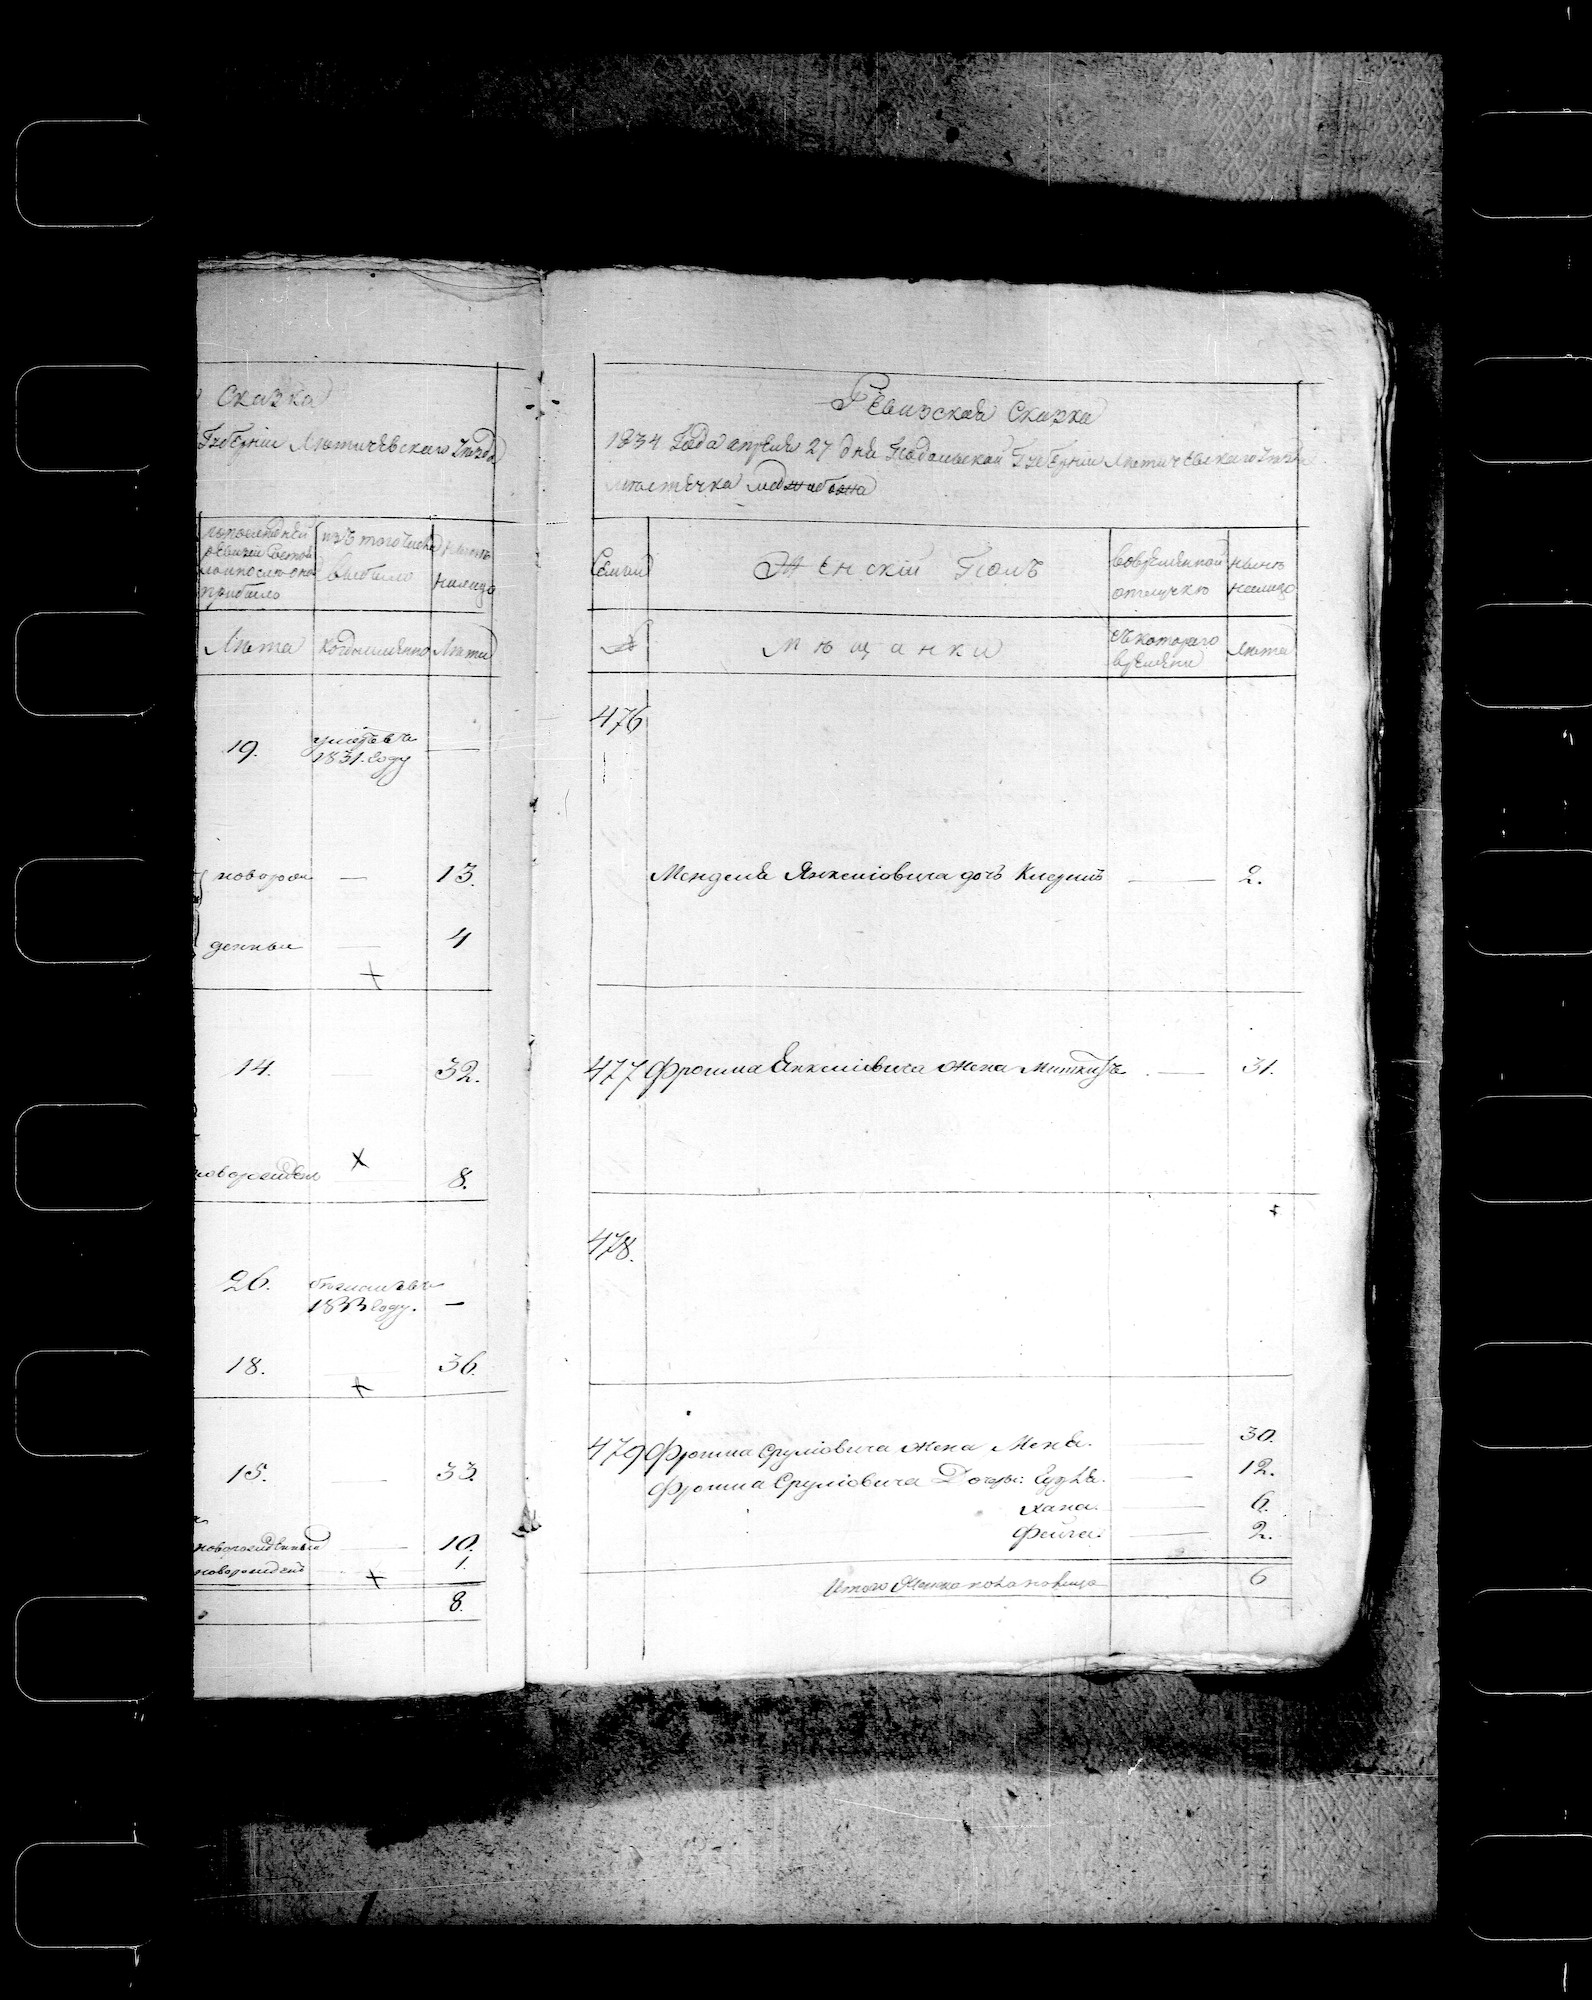 Сказка
Губернии Летичевскаго Уезда
попоследней
ревизии Состоя
ло и после она
прибыло
изъ того числа
выбыло
ныне
налицо
Лѣта
когда именно
Лѣта
19.
умеръ въ
1831. году
—
новорож
—
13.
денные
—
4
14.
32.
новорожденъ
8.
26.
бежалъ въ
1833 году.
—
18.
36.
15.
—
33.
новорожденный
—
10.
новорожденъ
1.
8.
Ревизская Сказка
1834 Года апреля 27 дня Подольской Губернии Летичевскаго Уезда
местечка Меджибожа
Семьи
Женскій Полъ
вовременной
отлучке
ныне
налицо
№
Мѣщанки
съ котораго
времени
лѣта
476
Менделя Янкеліовича дочь — 2.
477 Фроима Янкеліовича жена — 31.
478.
479 Фроима Сруліовича жена Меня. — 30.
Фроима Сруліовича Дочери: — 12.
Хана. — 6.
Фейга. — 2.
Итого Женска пола налицо 6